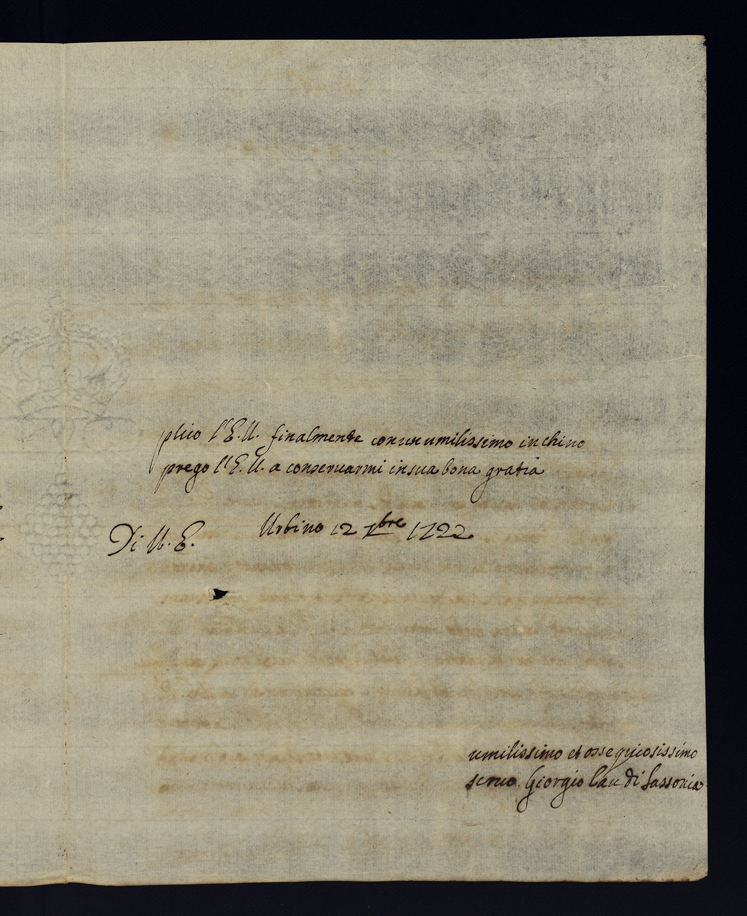 plico l'E.V. finalmente con un umilissimo inchino
prego l'E.V. a conservarmi in sua bona gratia
Di V. E. Urbino 12 7bre 1722
umilissimo et ossequiosissimo
servo Giorgio Cau di Sassonia